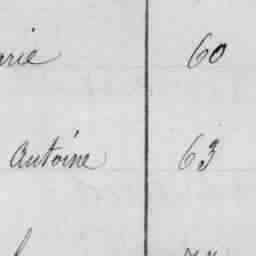 arie 60
Antoine 63